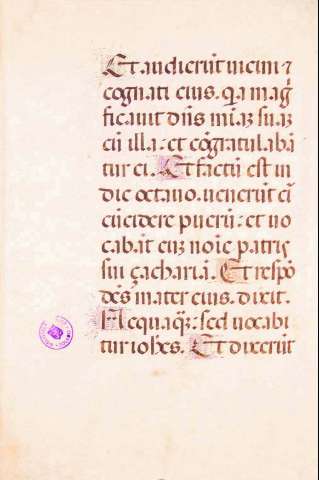 Et audierūt uicini ⁊
cognati eius. q̄a maḡ
ficauit dn̄s mīaꝫ suaꝫ
cū illa: et cōgratulabā
tur ei. Et factū est in
die octauo. uenerūt cū
cūcidere puerū: et uo
cabāt euꝫ noīe patris
sui çachariā. Et respō
dēs mater eius. dixit.
Nequaq̄ꝫ: sed uocabi
tur iohēs. Et dixerūt